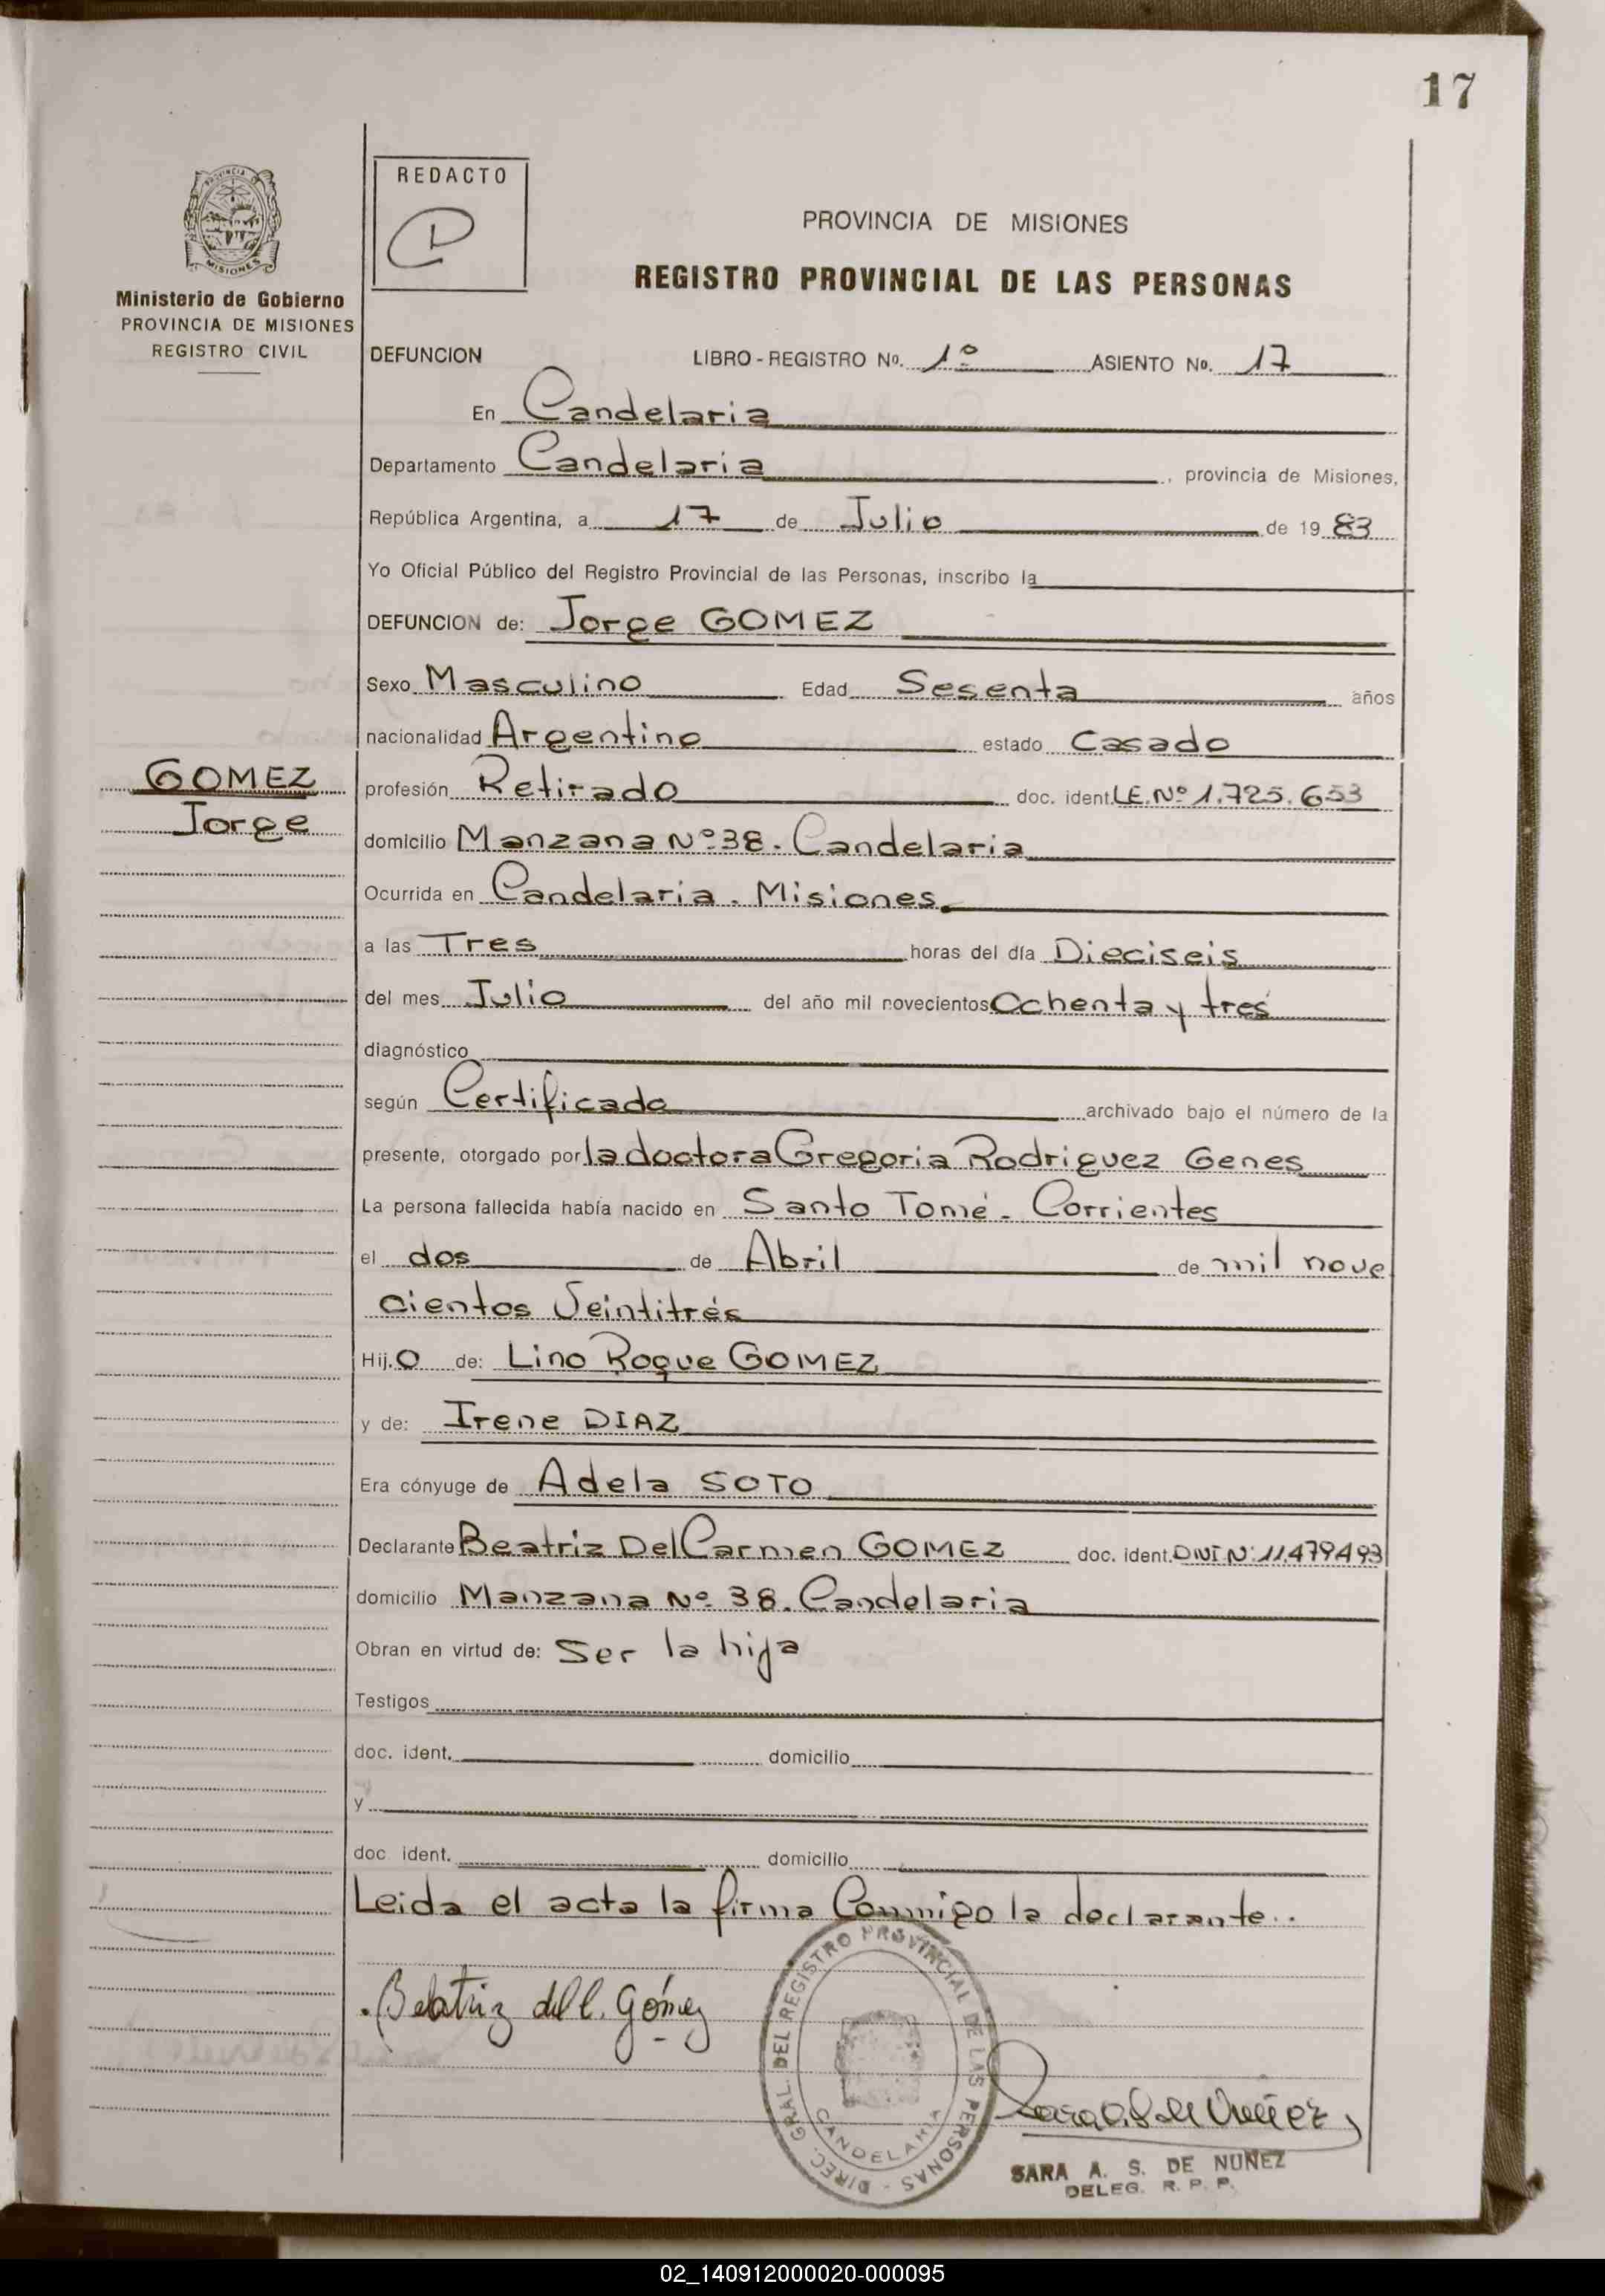 17
REDACTO
PROVINCIA DE MISIONES
REGISTRO PROVINCIAL DE LAS PERSONAS
PROVINCIA
MISIONES
Ministerio de Gobierno
PROVINCIA DE MISIONES
REGISTRO CIVIL
DEFUNCION LIBRO - REGISTRO No. 1º ASIENTO No. 17
En Candelaria
Departamento Candelaria, provincia de Misiones,
República Argentina, a 17 de Julio de 1983
Yo Oficial Público del Registro Provincial de las Personas, inscribo la
DEFUNCION de: Jorge GOMEZ
Sexo Masculino Edad Sesenta años
nacionalidad Argentino estado Casado
GOMEZ
Jorge
profesión Retirado doc. ident. L.E. Nº 1.725.653
domicilio Manzana Nº 38. Candelaria
Ocurrida en Candelaria. Misiones.
a las Tres horas del día Dieciseis
del mes Julio del año mil novecientos Ochenta y tres
diagnóstico
según Certificado archivado bajo el número de la
presente, otorgado por la doctora Gregoria Rodriguez Genes
La persona fallecida había nacido en Santo Tomé - Corrientes
el dos de Abril de mil nove
cientos Veintitrés
Hijo de: Lino Roque GOMEZ
y de: Irene DIAZ
Era cónyuge de Adela SOTO
Declarante Beatriz Del Carmen GOMEZ doc. ident. DNI Nº 11.479.493
domicilio Manzana Nº 38. Candelaria
Obran en virtud de: Ser la hija
Testigos
doc. ident. domicilio
y
doc ident. domicilio
Leida el acta la firma Conmigo la declarante..
Beatriz del C. Gómez
DIREC. GRAL. DEL REGISTRO PROVINCIAL DE LAS PERSONAS -
CANDELARIA
SARA A. S. DE NUÑEZ
DELEG. R. P. P.
02_140912000020-000095